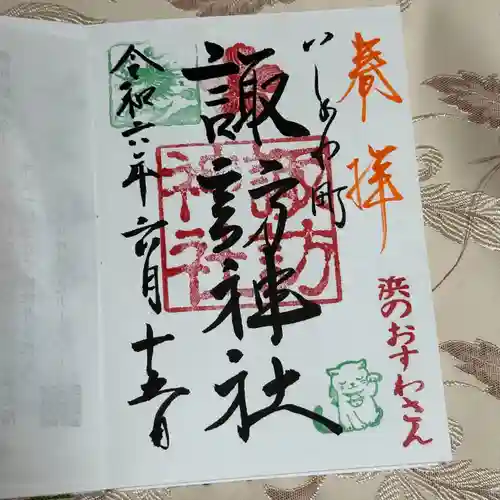 奉拝
浜のおすわさん
諏訪神社
諏訪
神社
令和六年六月十五日